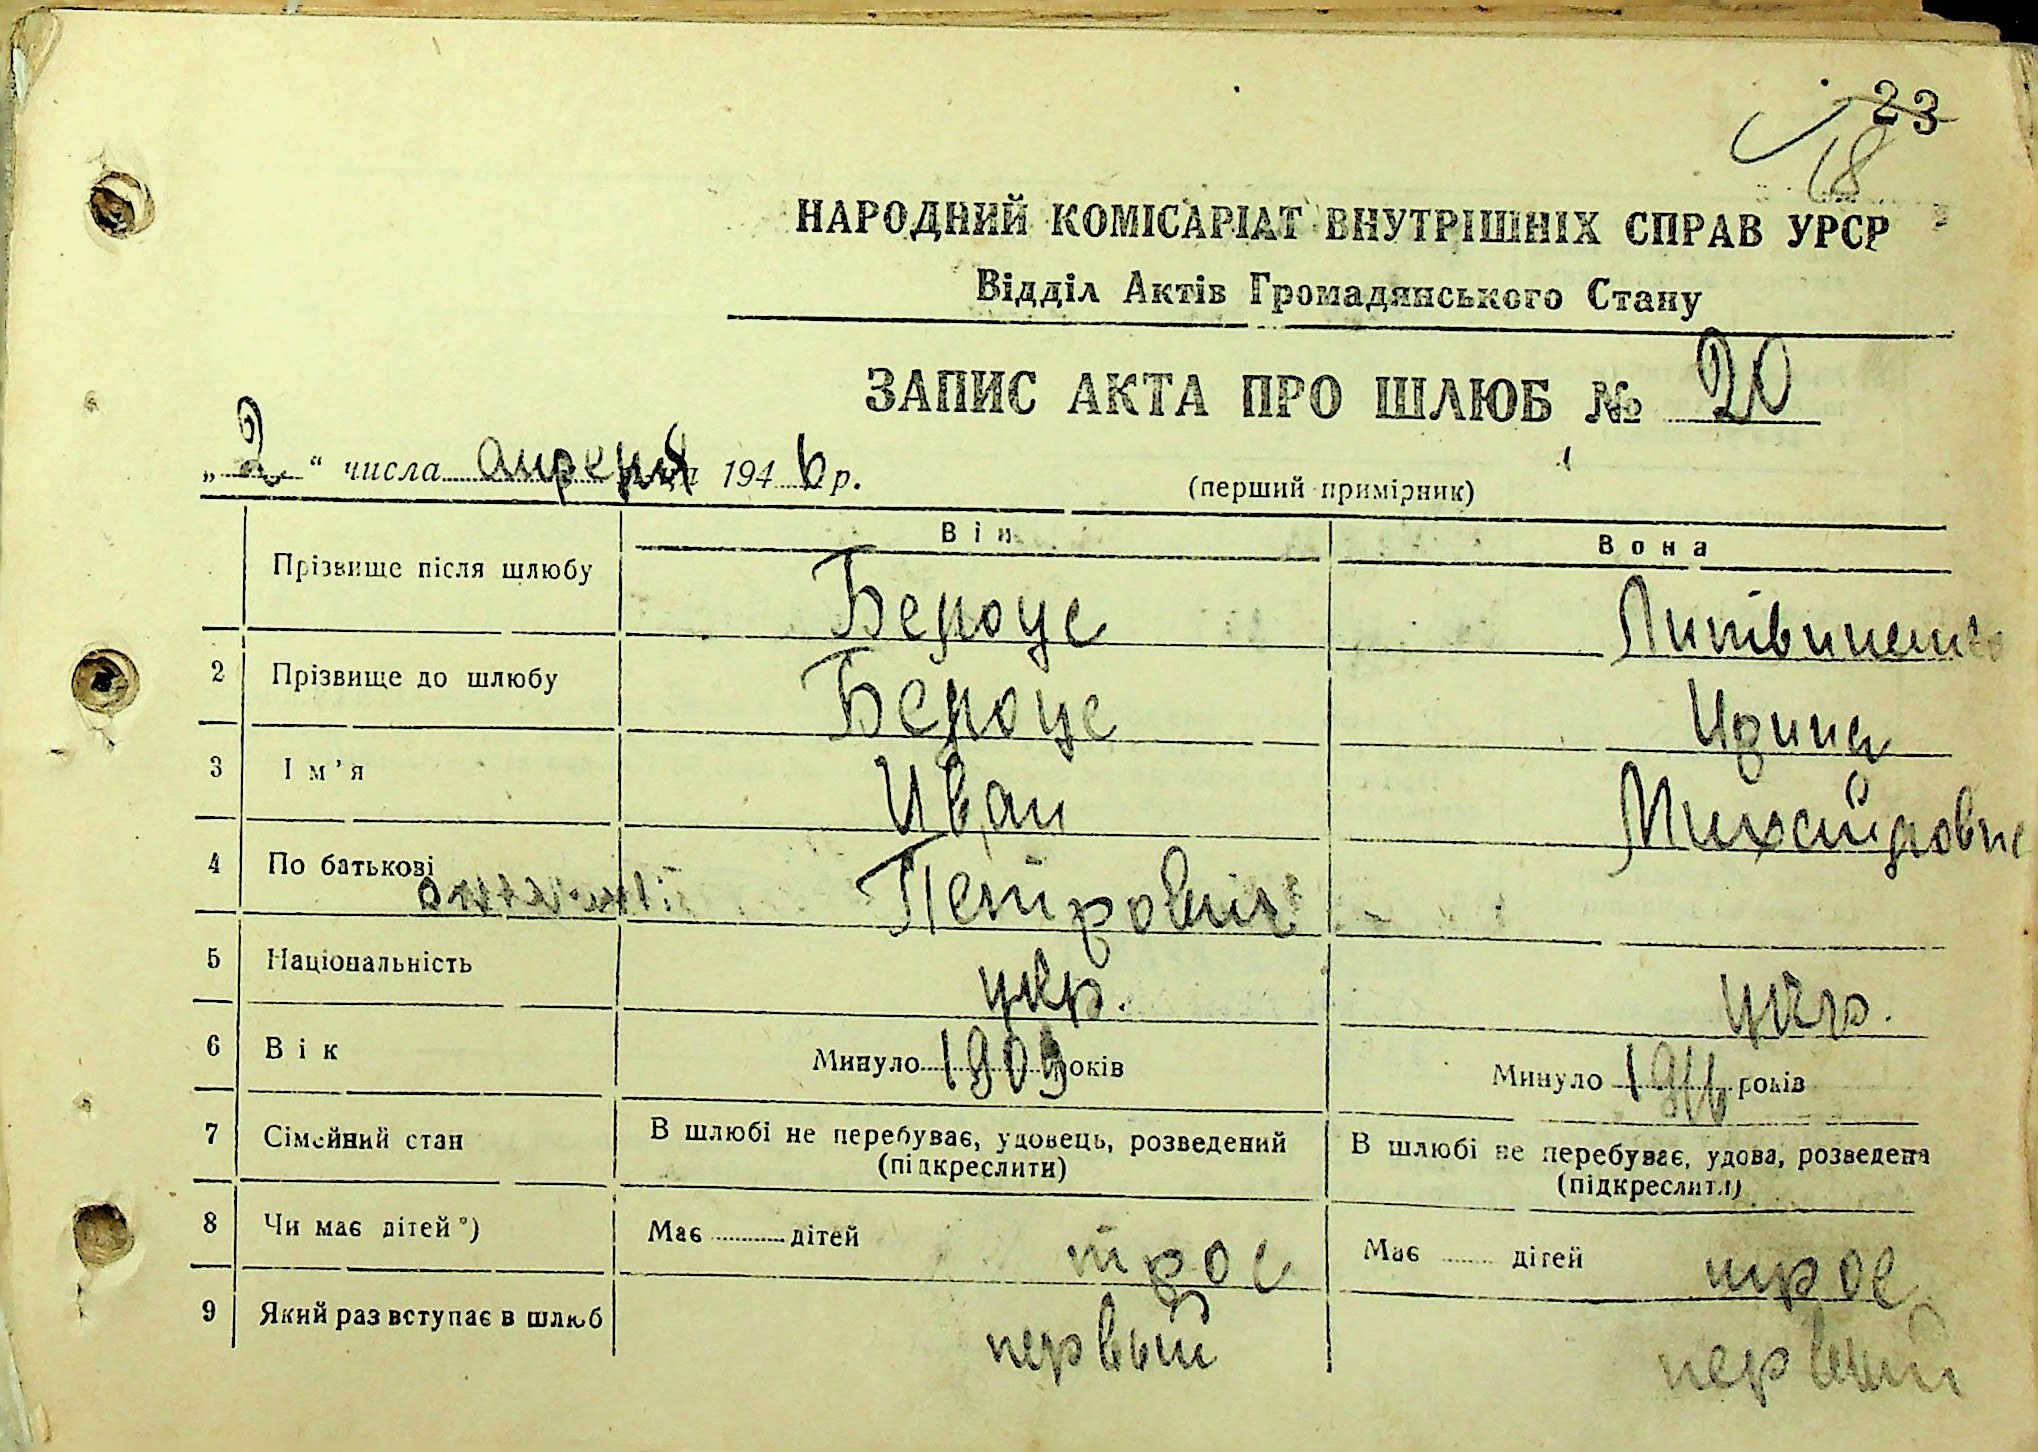 23
18
НАРОДНИЙ КОМІСАРІАТ ВНУТРІШНІХ СПРАВ УРСР
Відділ Актів Громадянського Стану
ЗАПИС АКТА ПРО ШЛЮБ № 20
„2“ числа апреля 1946 р.
(перший примірник)
Він Вона
Прізвище після шлюбу
2 Прізвище до шлюбу Ирина
3 Ім'я Иван
4 По батькові Петрович
5 Національність укр. укр.
6 Вік Минуло 1909 років Минуло 1916 років
7 Сімейний стан В шлюбі не перебуває, удовець, розведений (підкреслити) В шлюбі не перебуває, удова, розведена (підкреслити)
8 Чи має дітей*) Має дітей трое Має дітей трое
9 Який раз вступає в шлюб первый первый